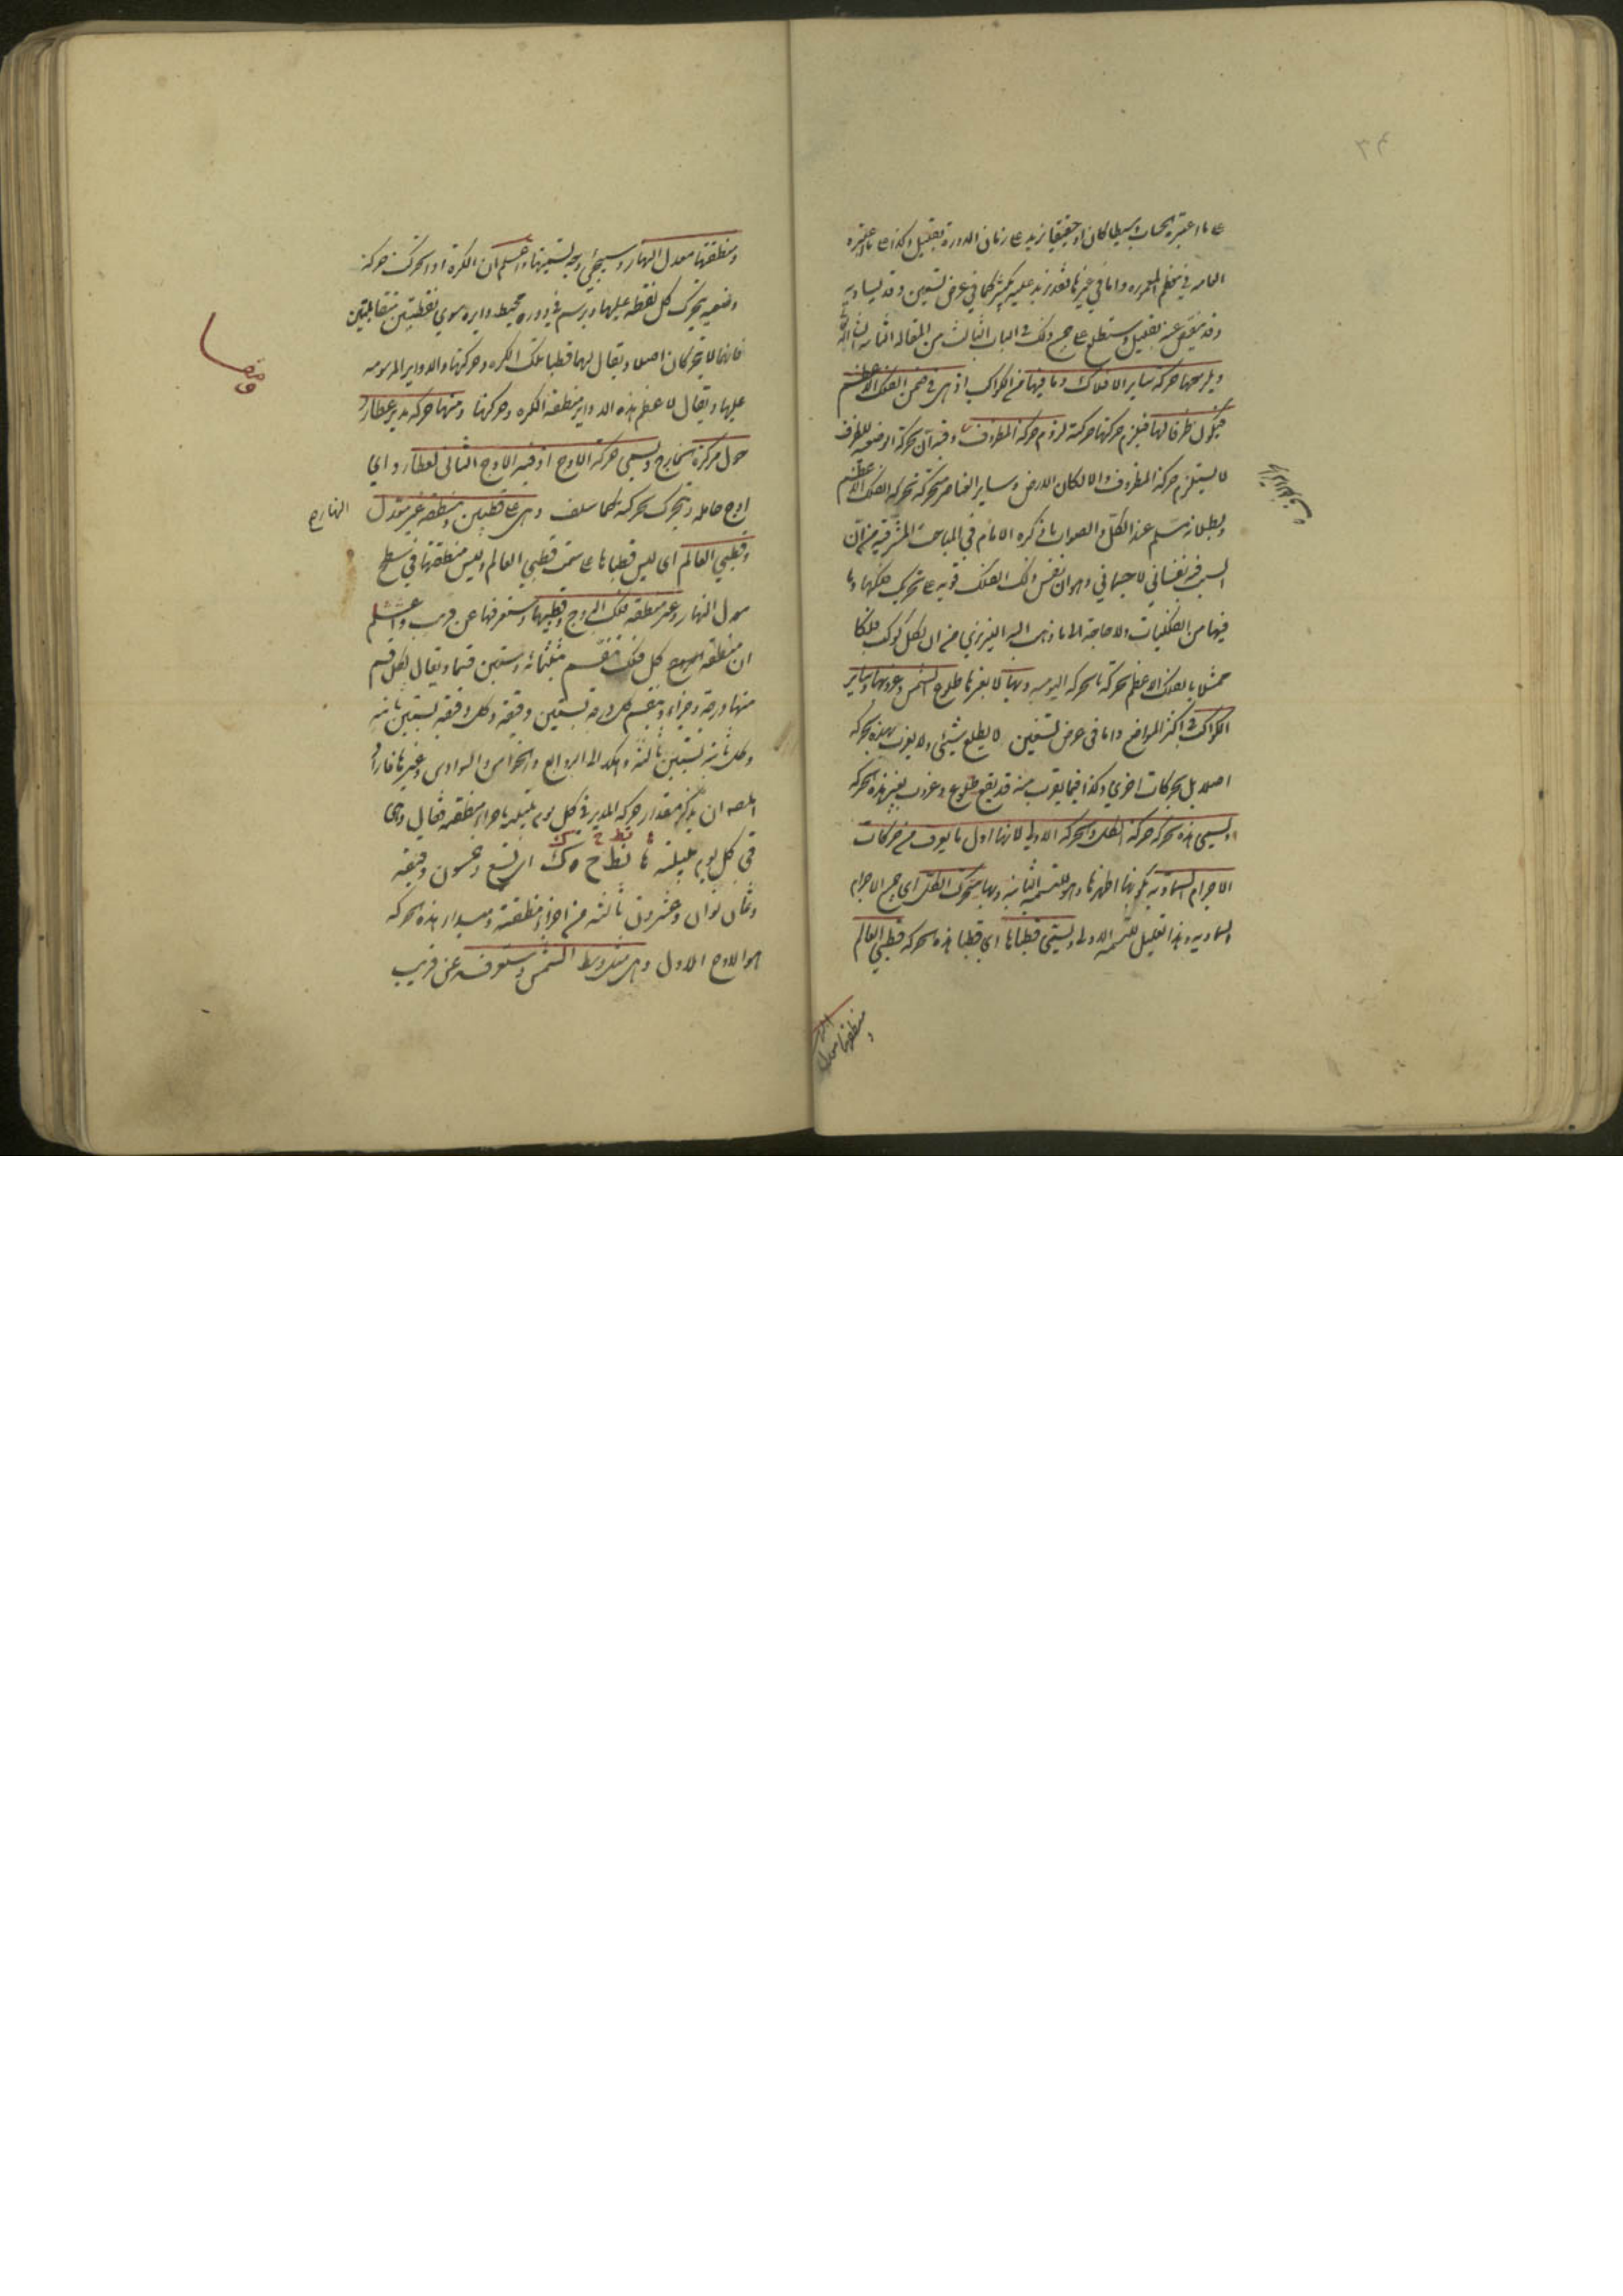 ٣٦
على ما اعتبره الحساب بسيطا كان او حقيقيا يزيد على زمان الدورة بقليل وكذا على ما اعتبره
العامه في معظم المعموره واما في غيرها فقد يزيد عليه بكثير كما في عرض تسعين وقد يساويه
وقد ينقص عنه بقليل وستطلع على جميع ذلك في الباب الثالث من المقاله الثانيه ان شاء الله
ويلزمها حركة ساير الافلاك وما فيها من الكواكب اذ هى في ضمن الفلك الاعظم
فيكون ظرفا لها فيلزم حركتها حركته لزوم حركة المظروف وفيه ان حركة الوضعيه للظرف
لا يستلزم حركة المظروف والا لكان الارض وساير العناصر متحركة بحركه الفلك الاعظم
وبطلانه مسلم عند الكل والصواب ما ذكره الامام في المباحث المشرقيه من ان
السبب فيه نفساني لا جسماني وهو ان نفس ذلك الفلك قويه على تحريك فلكها وما
فيها من الفلكيات ولا حاجة الى ما ذهب اليه التبريزي من ان لكل كوكب فلكا
ممثلا بالفلك الاعظم بحركته بالحركه اليوميه وبها لا بغيرها طلوع الشمس وغروبها وساير
الكواكب في اكثر المواضع واما في عرض تسعين لا يطلع شيئ ولا يغرب بهذه الحركه
اصلا بل بحركات اخرى وكذا فيما يقرب منه قد يقع طلوع وغروب بغير هذه الحركه
ويسمى هذه الحركه حركة الكل والحركه الاولى لانها اول ما يعرف من حركات
الاجرام السماويه لكونها اظهرها وهو للتسميه الثانيه وبها يتحرك الكل اى جميع الاجرام
السماويه وهذا تعليل للتسميه الاولى ويسمى قطباها اى قطبا هذه الحركه قطبي العالم
ومنطقتها معدل
ومنطقتها معدل النهار وسيجئ وجه تسميتها واعلم ان الكرة اذا تحركت حركة
وضعيه يتحرك كل نقطه عليها ويرسم في دوره محيط دايره سوى نقطتين متقابلتين
فانهما لا يتحركان اصلا ويقال لهما قطبا تلك الكره وحركتها والدواير المرسومه
عليها ويقال لاعظم هذه الدواير منطقة الكره وحركتها ومنها حركة مدير عطارد
حول مركزه الخارج ويسمى حركة الاوج اذ فيه الاوج الثانى لعطارد اى
اوج حامله ويتحرك بحركته كما سلف وهى على قطبين ومنطقه غير معدل النهار
وقطبي العالم اى ليس قطباها على سمت قطبي العالم وليس منطقتها في سطح
معدل النهار وغير منطقه فلك البروج وقطبيها وستعرفها عن قريب واعلم
ان منطقة كل فلك تنقسم بثلثمائه وستين قسما ويقال لكل قسم
منها درجة وجزء وينقسم كل درجه بستين دقيقه وكل دقيقه بستين ثانيه
وكل ثانيه بستين ثالثه وهكذا الى الروابع والخوامس والسوادس وغيرها فاراد
المصه ان يذكر مقدار حركة المدير في كل يوم بليلته باجزاء منطقته فقال وهى
في كل يوم بليلته نط ح ك اى تسع وخمسون دقيقه
وثمان ثوان وعشرون ثالثه من اجزاء منطقته ومبدا هذه الحركه
هو الاوج الاول وهى مثل وسط الشمس وستعرفه عن قريب